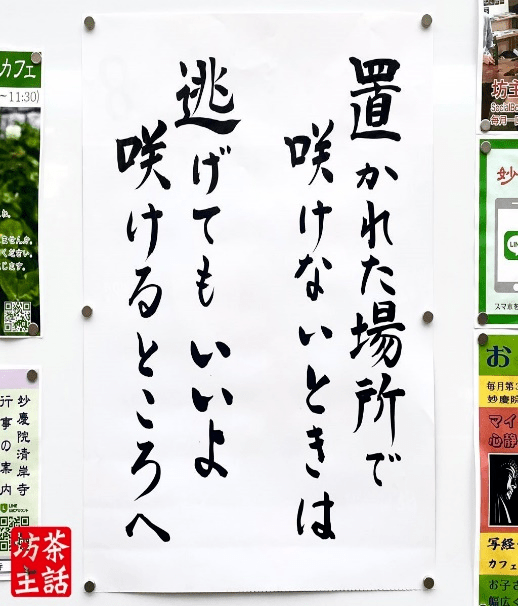 置かれた場所で
咲けないときは
逃げてもいいよ
咲けるところへ
カフェ
~11:30)
ませんか。
ください。
妙慶院清岸寺
行事の案内
坊主
毎月一回
妙
LINE
スマホを
お
毎月第3
妙慶院
マイ
心静
写経
カフェ
お子さ
幅広く
茶話
坊主